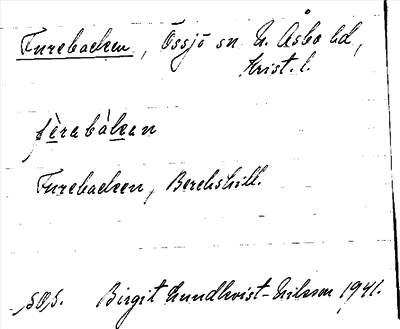 Furebacken, Össjö sn N. Åsbo hd,
Krist. l.
fèrabàkan
Furebacken, Backshill.
SOS. Birgit Lundkvist-Nilsson 1941.